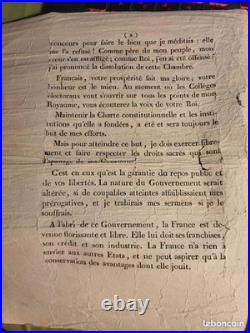 ( 2 )
concours pour faire le bien que je méditais : elle
me l'a refusé ! Comme père de mon peuple, mon
cœur s'en est affligé ; comme Roi, j'en ai été offensé : j'ai
prononcé la dissolution de cette Chambre.
Français, votre prospérité fait ma gloire; votre
bonheur est le mien. Au moment où les Colléges
électoraux vont s'ouvrir sur tous les points de mon
Royaume, vous écouterez la voix de votre Roi.
Maintenir la Charte constitutionnelle et les insti-
tutions qu'elle a fondées, a été et sera toujours le
but de mes efforts.
Mais pour atteindre ce but, je dois exercer libre-
ment et faire respecter les droits sacrés qui sont
l'apanage de ma Couronne.
C'est en eux qu'est la garantie du repos public et
de vos libertés. La nature du Gouvernement serait
altérée, si de coupables atteintes affaiblissaient mes
prérogatives, et je trahirais mes sermens si je
le souffrais.
A l'abri de ce Gouvernement, la France est de-
venue florissante et libre. Elle lui doit ses franchises,
son crédit et son industrie. La France n'a rien à
envier aux autres Etats, et ne peut aspirer qu'à la
conservation des avantages dont elle jouit.
leboncoin